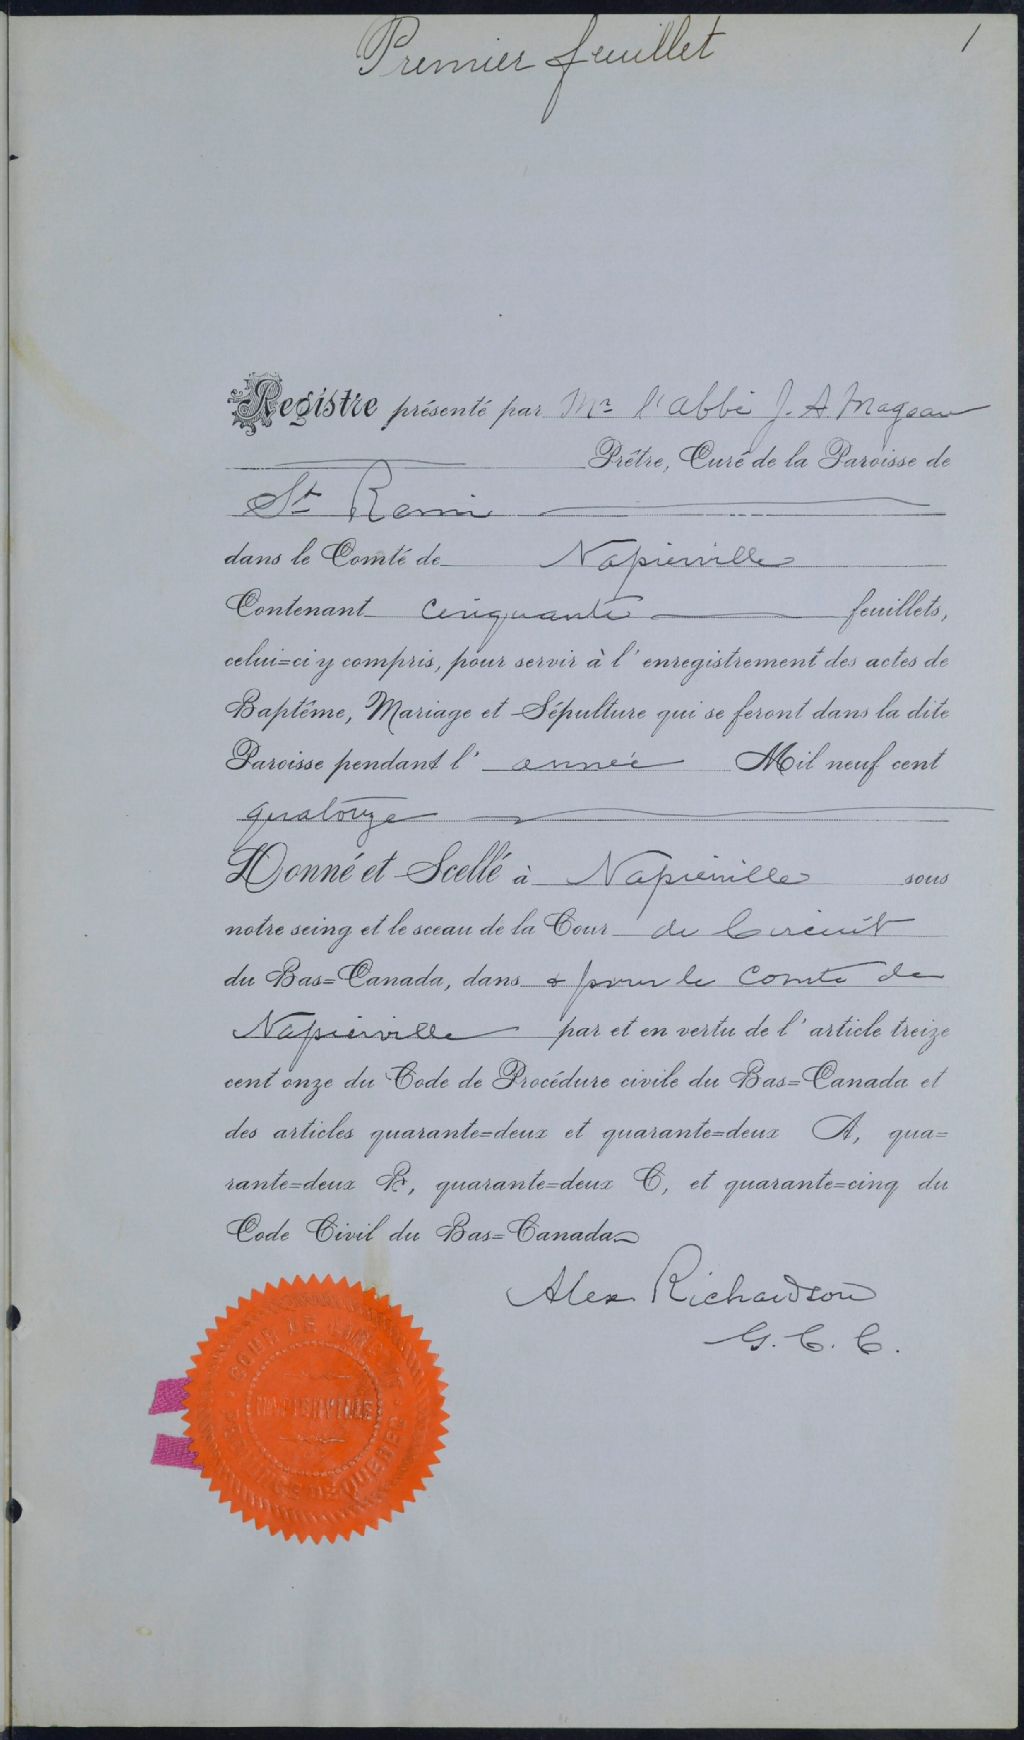 Premier feuillet
1
Registre présenté par Mr l'abbé J. A. Mageau
Prêtre, Curé de la Paroisse de
St Remi
dans le Comté de Napierville
Contenant cinquante feuillets,
celui=ci y compris, pour servir à l'enregistrement des actes de
Baptême, Mariage et Sépulture qui se feront dans la dite
Paroisse pendant l' année Mil neuf cent
quatorze
Donné et Scellé à Napierville sous
notre seing et le sceau de la Cour de Circuit
du Bas=Canada, dans & pour le Comté de
Napierville par et en vertu de l'article treize
cent onze du Code de Procédure civile du Bas=Canada et
des articles quarante=deux et quarante=deux A, qua=
rante=deux B, quarante=deux C, et quarante=cinq du
Code Civil du Bas=Canada
Alex Richardson
G. C. C.
COUR DE CIRCUIT
NAPIERVILLE
PROVINCE DE QUEBEC